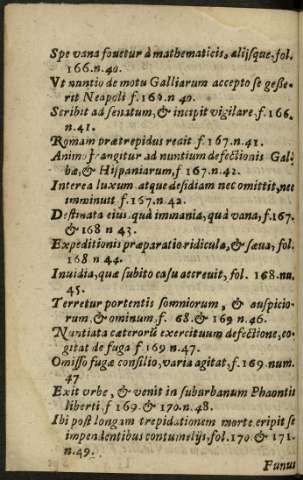 Spe vana fouetur à mathematicis, alijsque, fol.
166.n.40.
Vt nuntio de motu Galliarum accepto se gesse-
rit Neapoli f.160.n 40.
Scribit ad senatum, & incipit vigilare. f.166.
n.41.
Romam prætrepidus redit f.167.n.41.
Animo frangitur ad nuntium defectionis Gal-
bæ, & Hispaniarum, f 167.n.42.
Interea luxum atque desidiam nec omittit, nec
imminuit f.167.n.42.
Destinata eius quà immania, quà vana, f.167.
& 168 n 43.
Expeditionis præparatio ridicula, & sæua, fol.
168 n 44.
Inuidia, quæ subito casu accreuit, fol. 168.nu.
45.
Terretur portentis somniorum, & auspicio-
rum, & ominum, f. 68. & 169 n.46.
Nuntiata cæterorũ exercituum defectione, co-
gitat de fuga f 169 n.47.
Omisso fugæ consilio, varia agitat, f.169.num.
47
Exit vrbe, & venit in suburbanum Phaontis
liberti, f 169. & 170.n.48.
Ibi post longam trepidationem morte eripit se
impendentibus contumelijs, fol.170. & 171.
n.49.
Funus